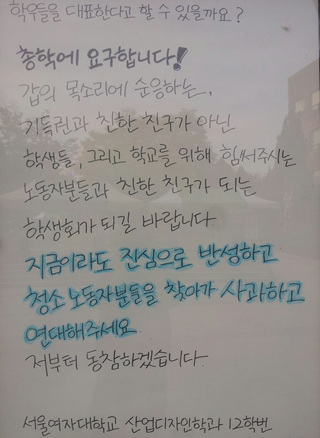 학우들을 대표한다고 할 수 있을까요?
총학에 요구합니다!
갑의 목소리에 순응하는,
기득권과 친한 친구가 아닌
학생들, 그리고 학교를 위해 힘써주시는
노동자분들과 친한 친구가 되는
학생회가 되길 바랍니다
지금이라도 진심으로 반성하고
청소 노동자분들을 찾아가 사과하고
연대해주세요
저부터 동참하겠습니다.
서울여자대학교 산업디자인학과 12학번